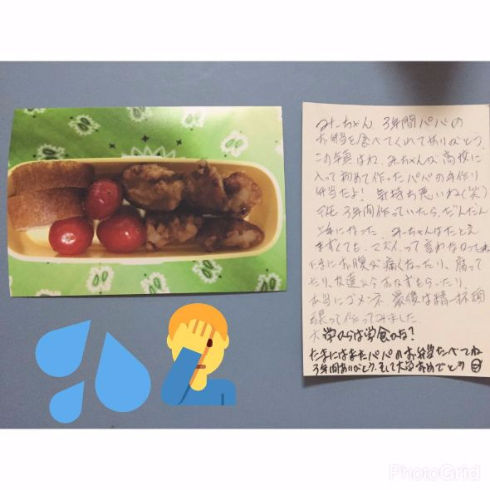 みーちゃん 3年間パパの
お弁当を食べてくれてありがとう。
この写真はね、みーちゃんが高校に
入って初めて作ったパパの手作り
弁当だよ!気持ち悪いね(笑)
でも3年間作っていたら、だんだん
上手になった みーちゃんはたとえ
まずくても、マズイって言わなかったね
たまにお腹が痛くなったり、腐って
たり、友達からおかずもらったり、
本当にゴメンネ 最後は精一杯頑
張って作ってみました
大学からは学食かな?
たまにはまたパパのお弁当たべてね
3年間ありがとう。そして大学おめでとう
PhotoGrid